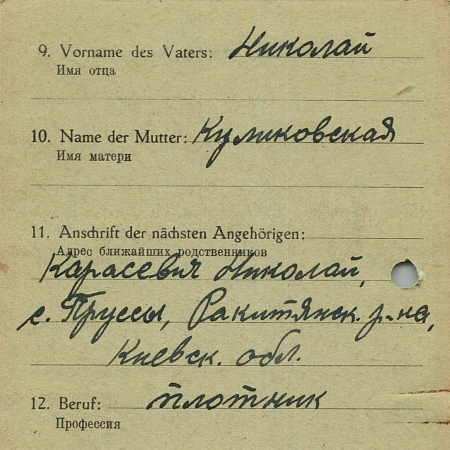 9. Vorname des Vaters: Николай
Имя отца
10. Name der Mutter: Куликовская
Имя матери
11. Anschrift der nächsten Angehörigen:
Адрес ближайших родственников
Карасевич Николай,
с. Пруссы, Ракитянск. р-на,
Киевск. обл.
12. Beruf: плотник
Профессия